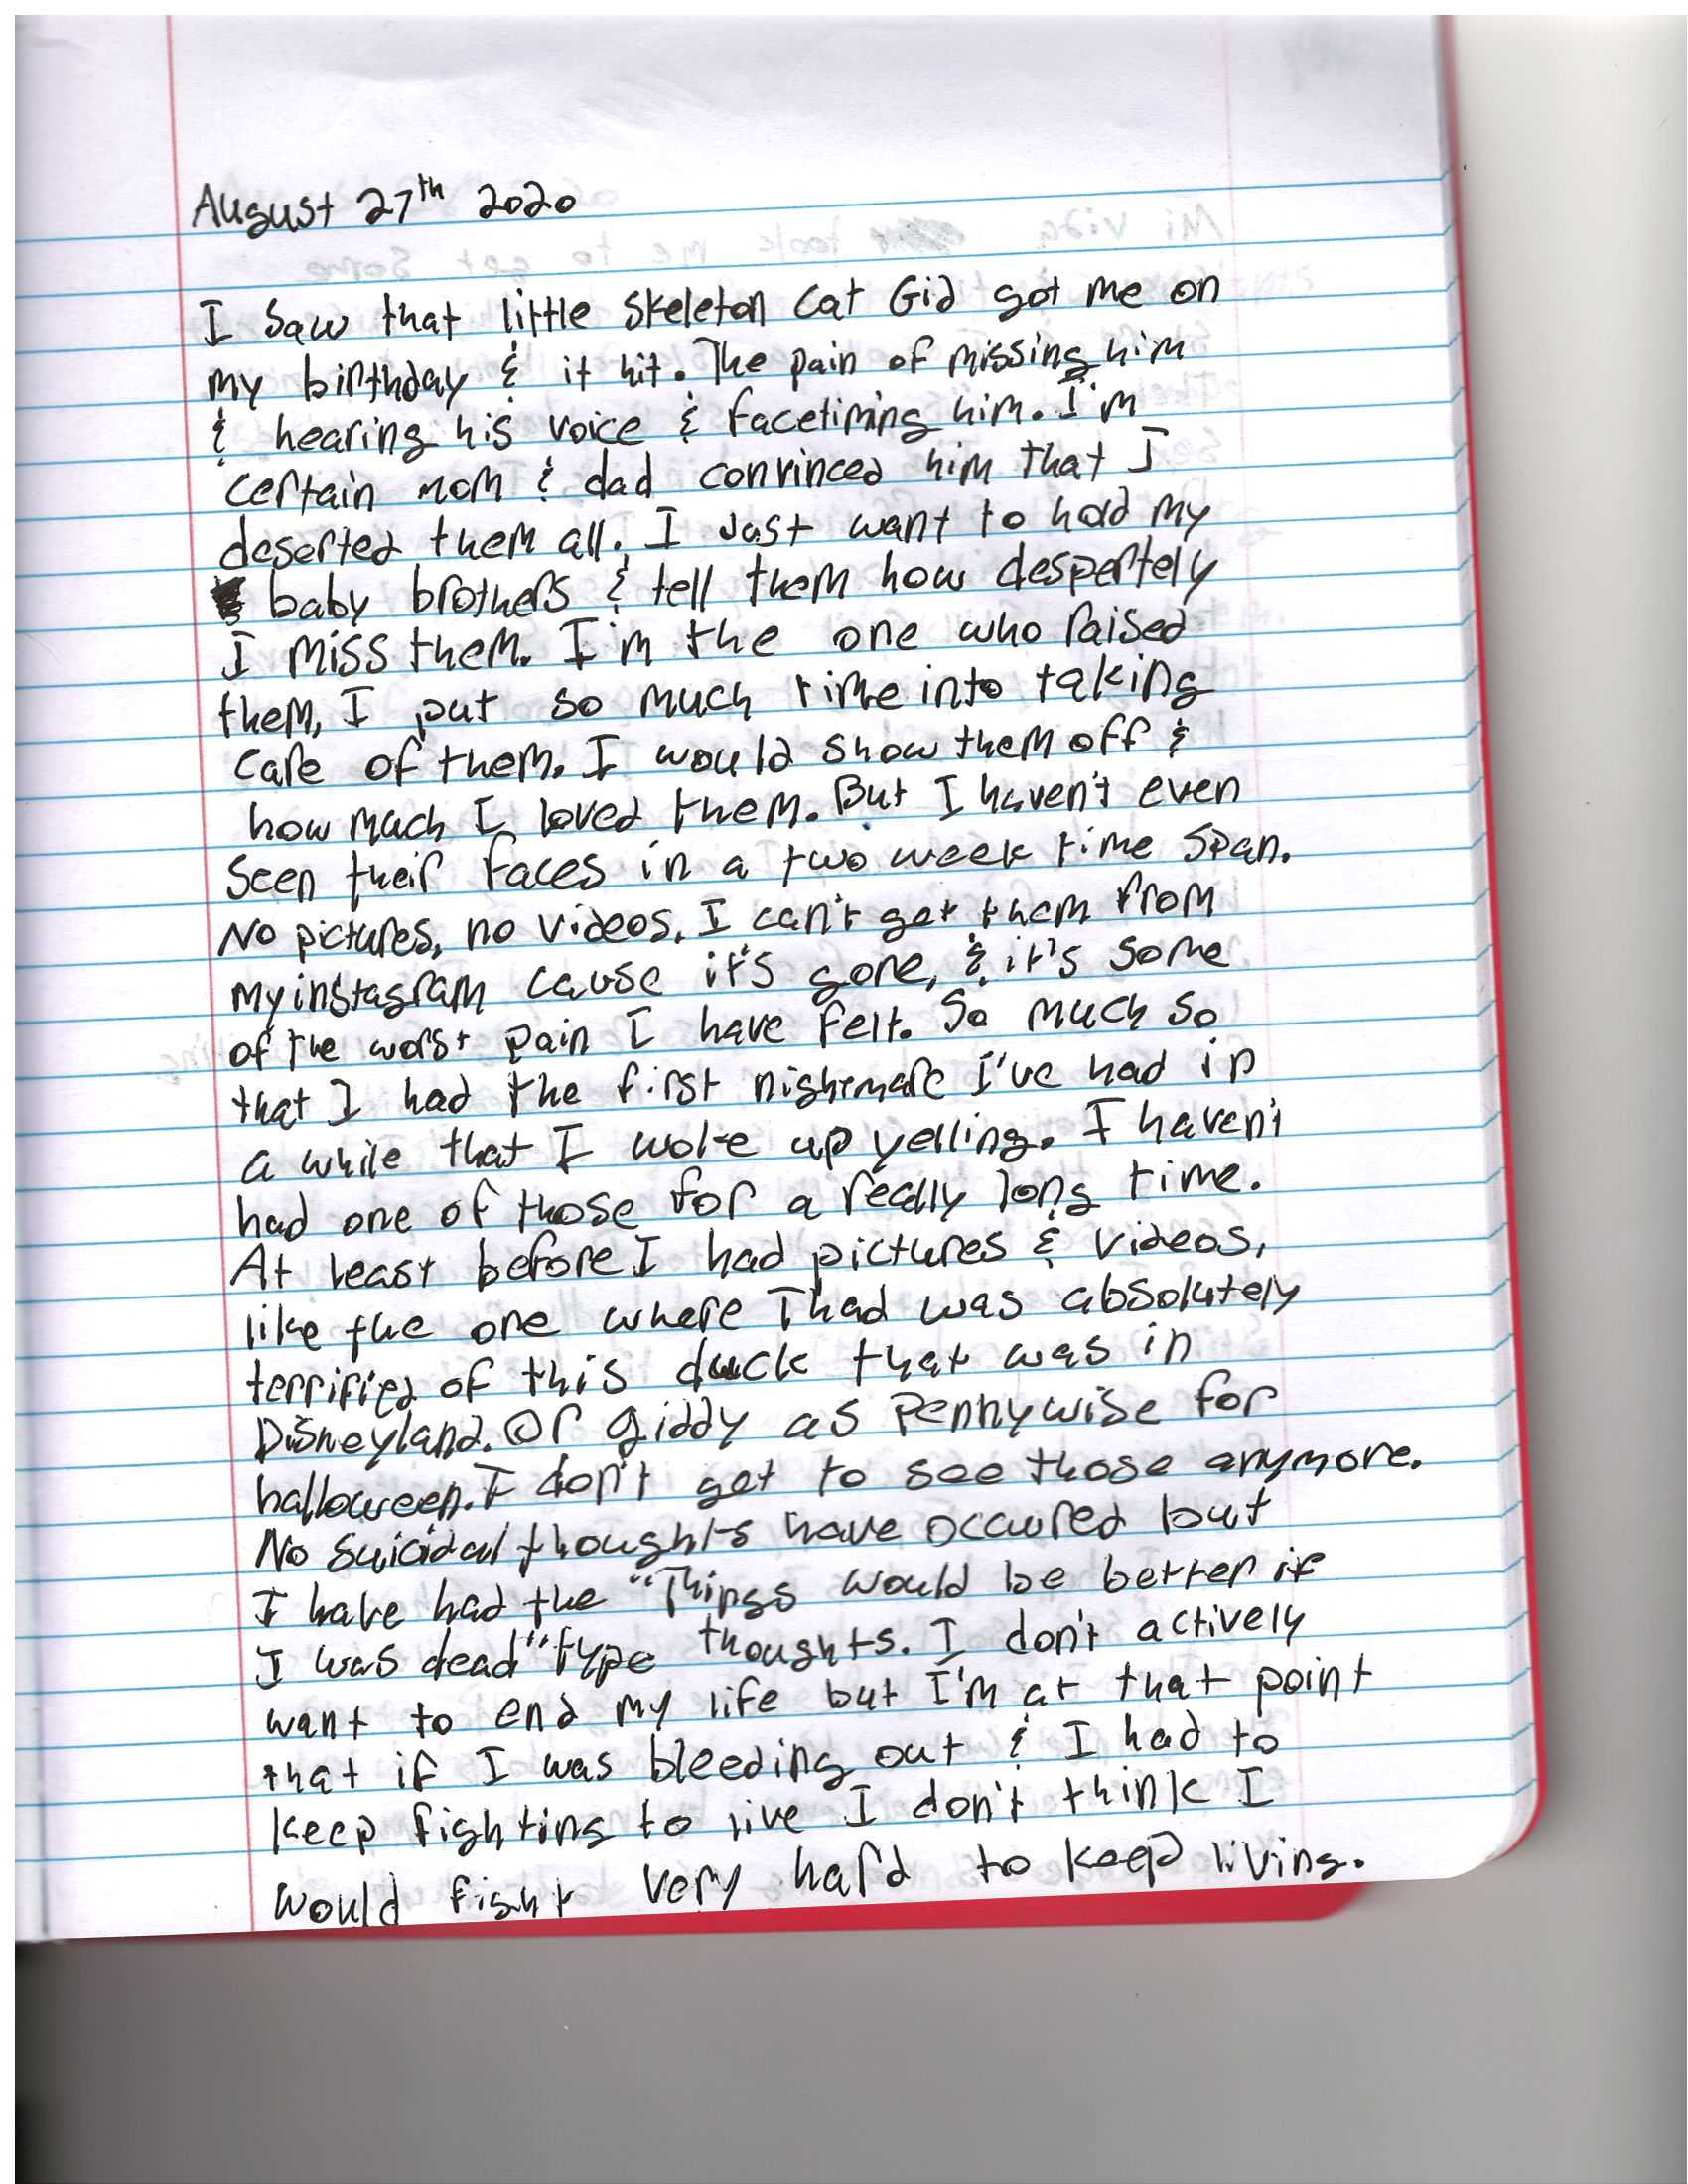 August 27th 2020
I saw that little skeleton cat Gid got me on
my birthday & it hit. The pain of missing him
& hearing his voice & facetiming him. I'm
certain mom & dad convinced him that I
deserted them all. I Just want to hold my
baby brothers & tell them how despertely
I miss them. I'm the one who raised
them, I put so much time into taking
care of them. I would show them off &
how much I loved them. But I haven't even
seen their faces in a two week time span.
No pictures, no videos. I can't get them from
my instagram cause it's gone, & it's some
of the worst pain I have felt. So much so
that I had the first nightmare I've had in
a while that I woke up yelling. I haven't
had one of those for a really long time.
At least before I had pictures & videos,
like the one where Thad was absolutely
terrified of this duck that was in
Disneyland. Or giddy as Pennywise for
halloween. I don't get to see those anymore.
No suicidal thoughts have occured but
I have had the "Things would be better if
I was dead" type thoughts. I don't actively
want to end my life but I'm at that point
that if I was bleeding out & I had to
keep fighting to live I don't think I
would fight very hard to keep living.